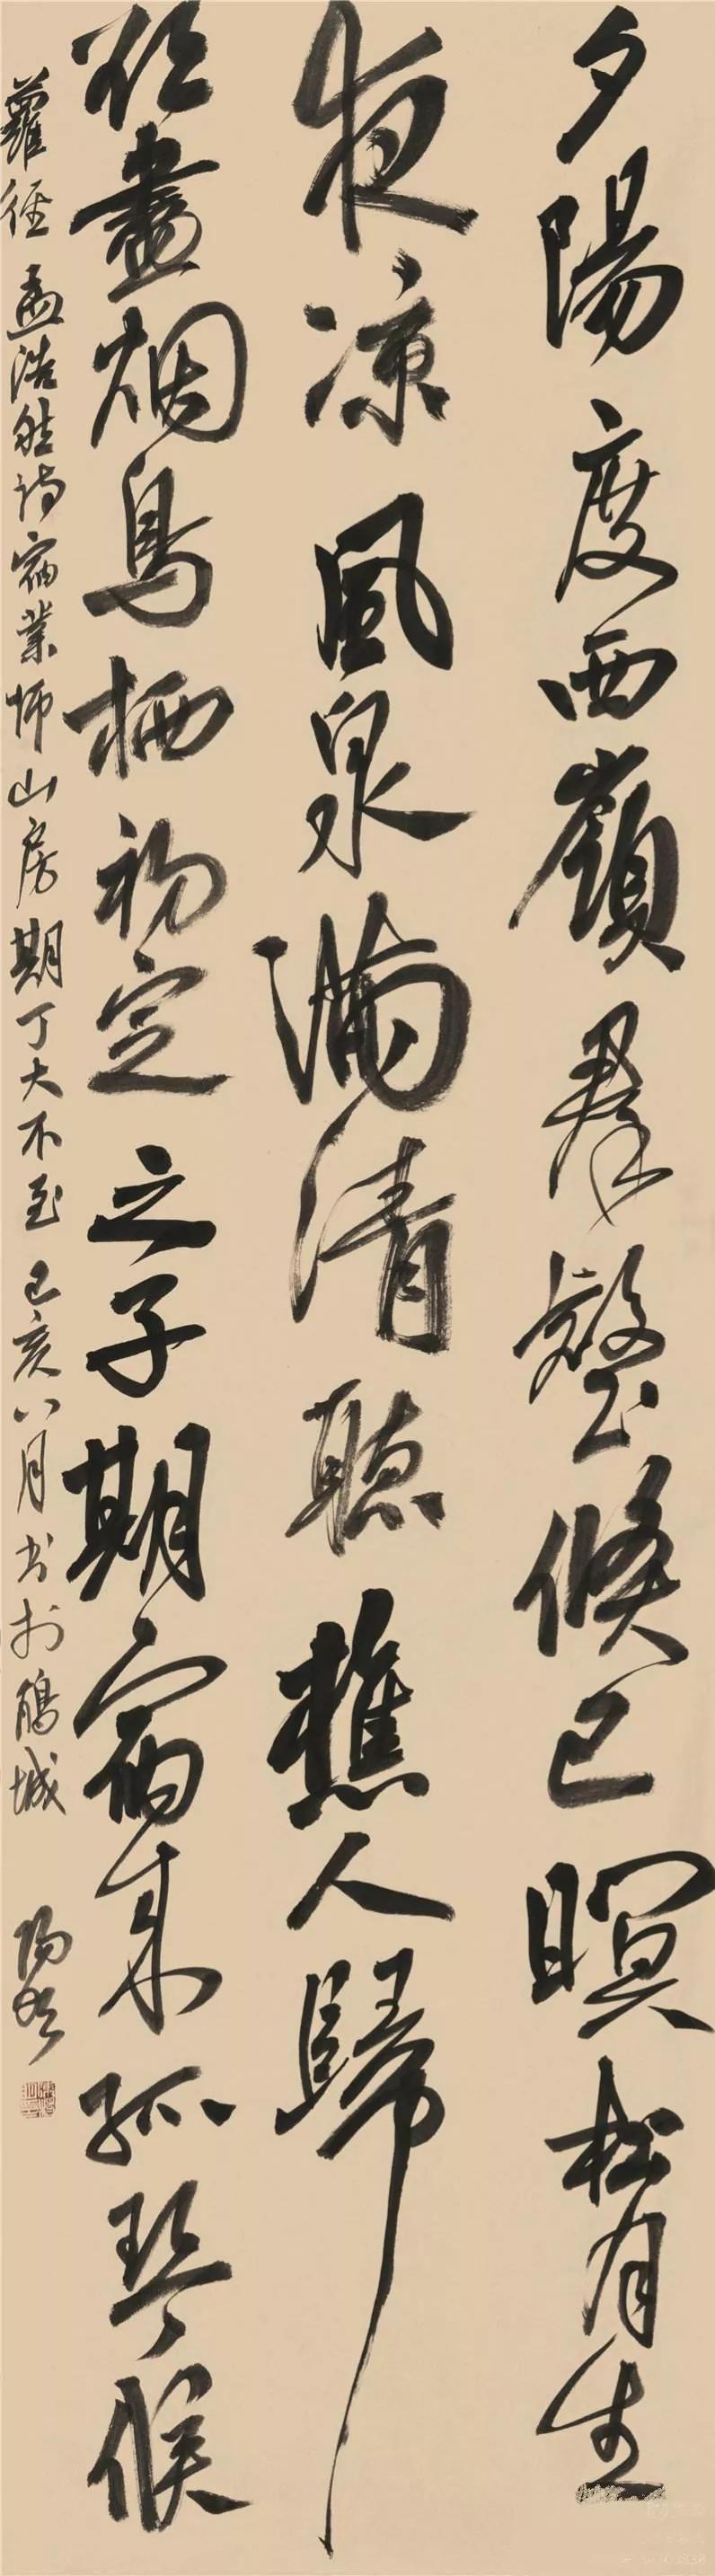 夕陽度西嶺羣壑倏已瞑松月生
夜凉風泉滿清聽樵人歸
欲盡烟鳥栖初定之子期宿來孤琴候
蘿徑孟浩然詩宿業師山房期丁大不至己亥八月书於鵬城